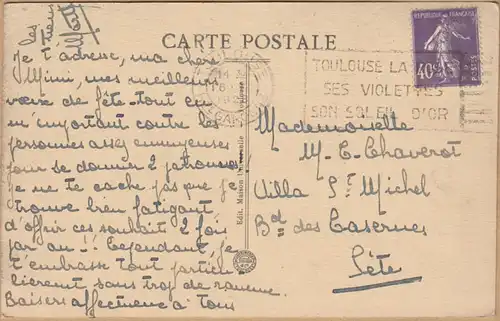 les
tiens
CARTE POSTALE
REPUBLIQUE FRANÇAISE
40c
POSTES
TOULOUSE LA
SES VIOLETTES
SON SOLEIL D'OR
GARE
Je t'adresse, ma chère
Mimi, mes meilleurs
vœux de fête tout en
m'emportant contre les
personnes assez ennuyeuses
pour se donner 2 patronnes
je ne te cache pas que je
trouve bien fatigant
d'offrir ces souhaits 2 fois
par an !! Cependant, je
t'embrasse tout particu-
lièrement sans trop de rancune.
Baisers affectueux à tous
Edit. Maison Universelle
Mademoiselle
M. C. Chaverot
Villa St. Michel
Bd des Casernes
Sète